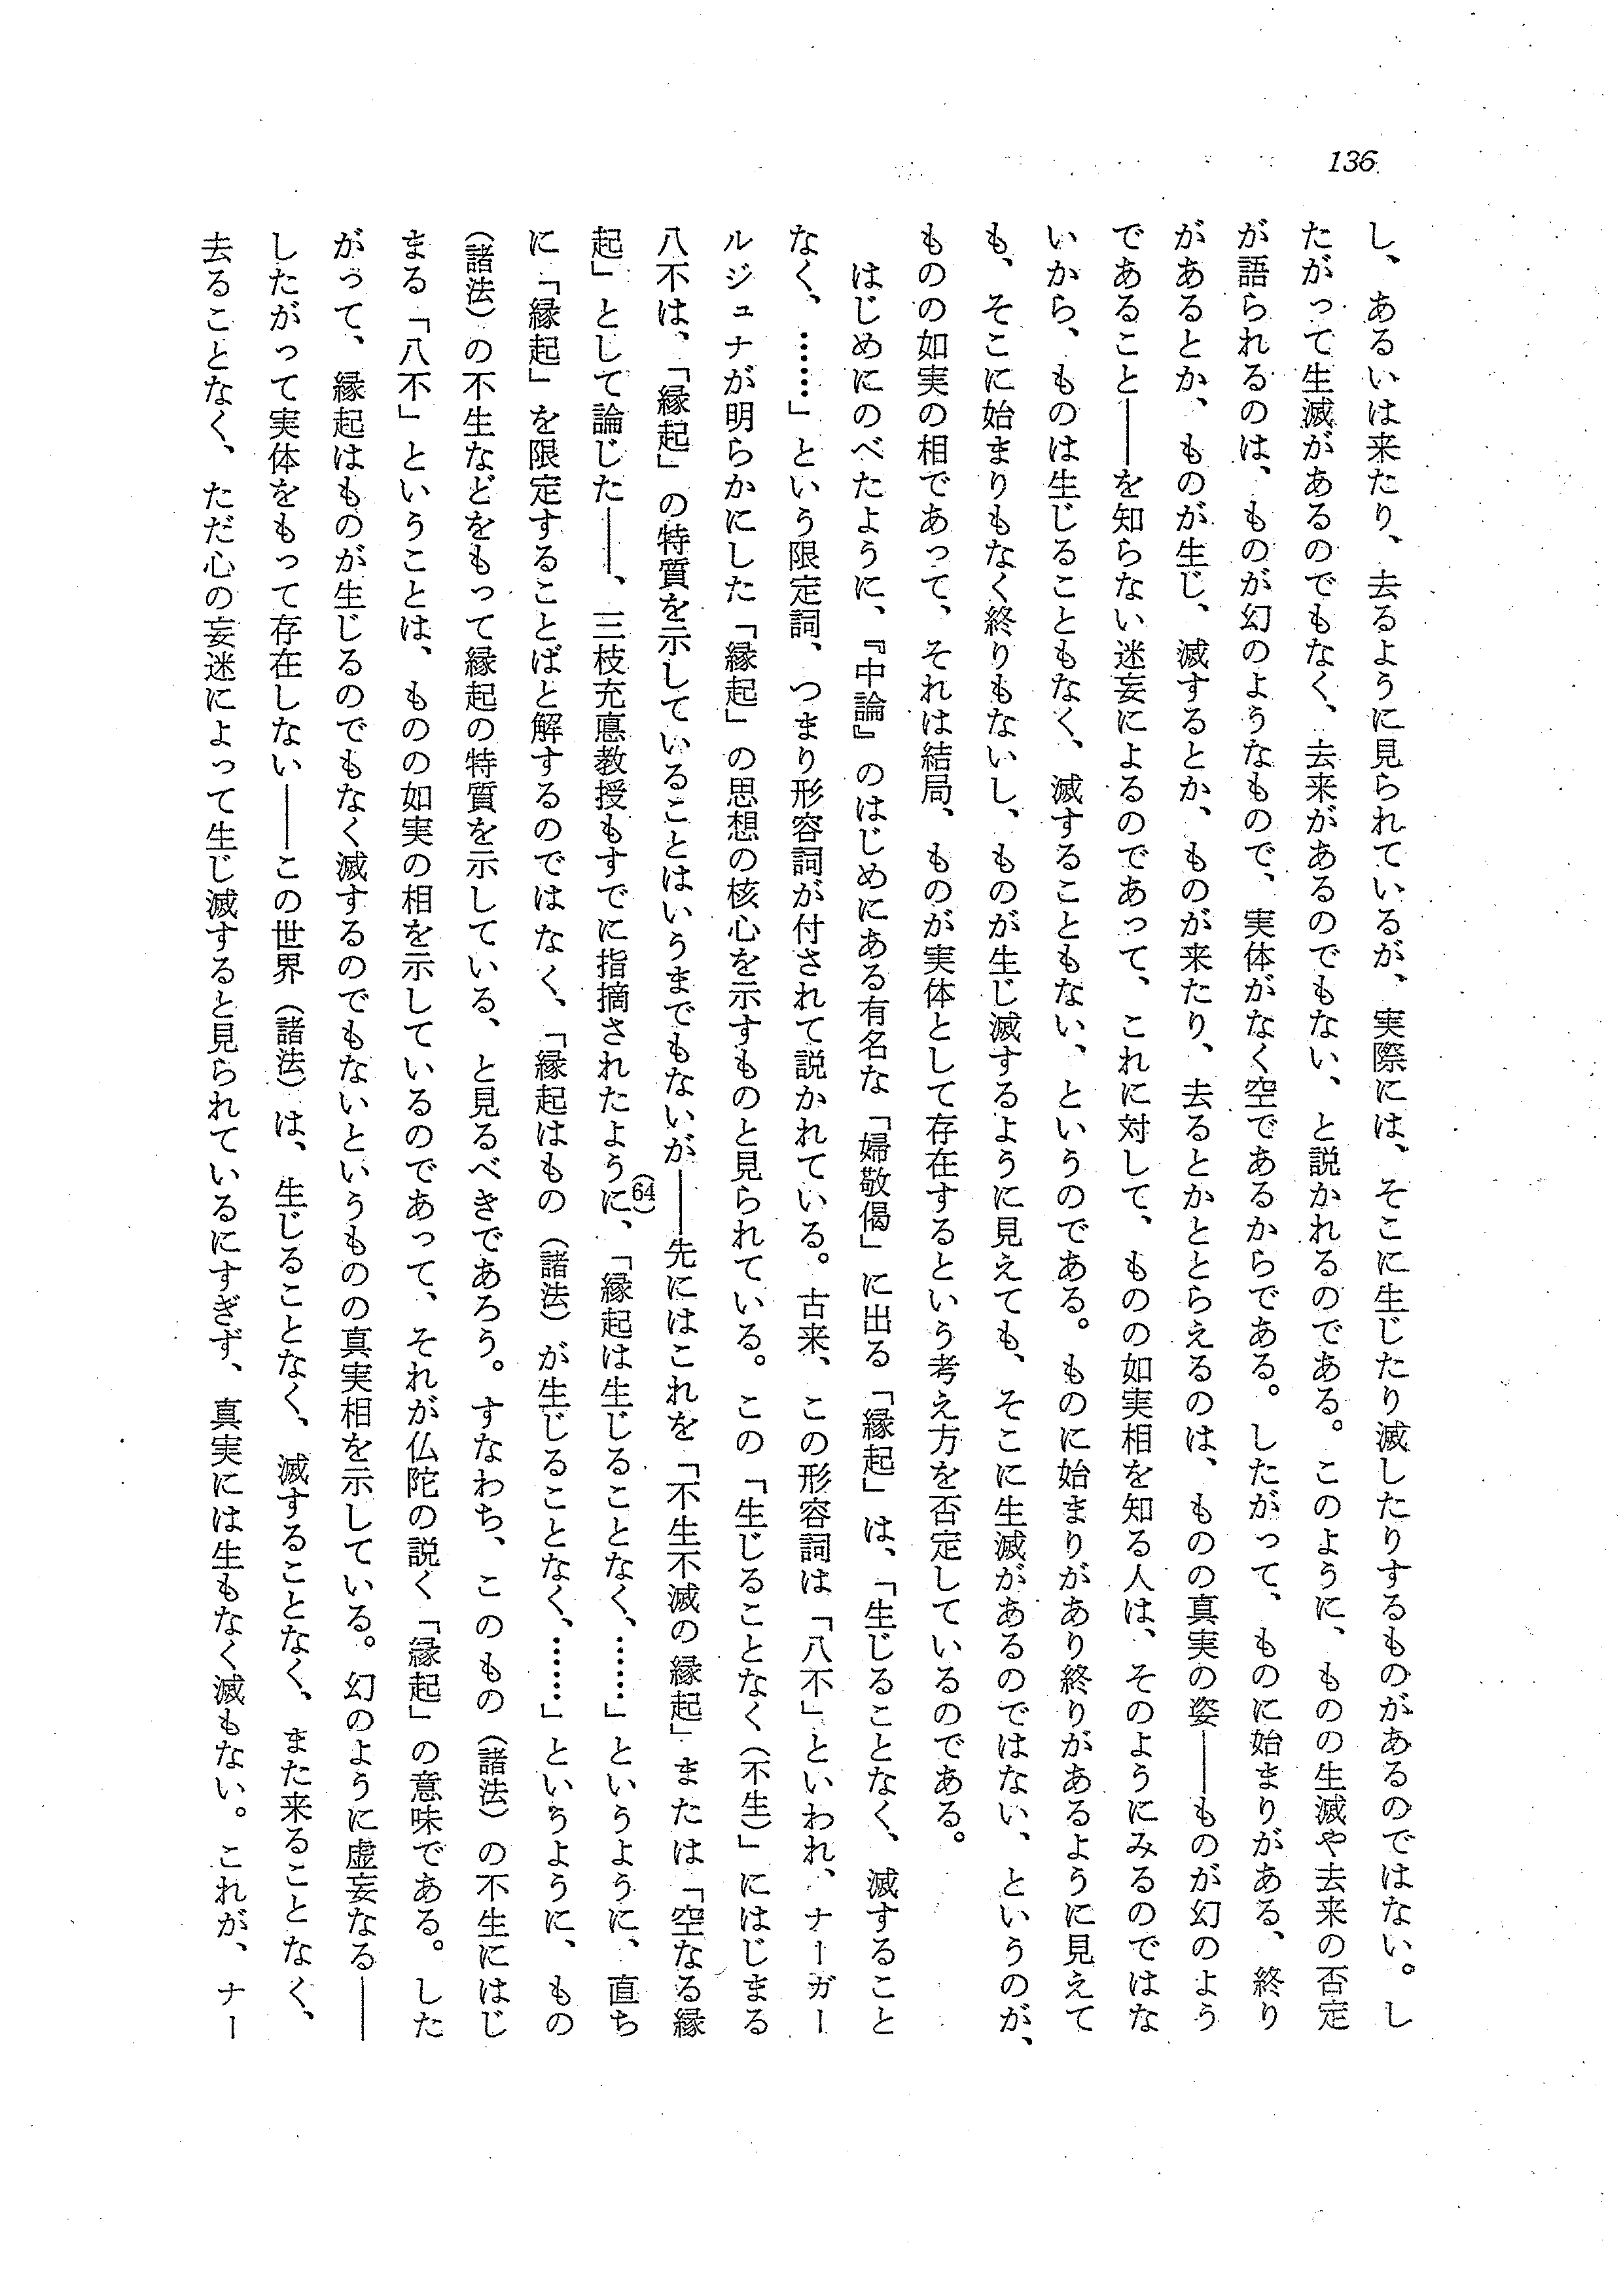 136
し、あるいは来たり、去るように見られているが、実際には、そこに生じたり滅したりするものがあるのではない。し
たがって生滅があるのでもなく、去来があるのでもない、と説かれるのである。このように、ものの生滅や去来の否定
が語られるのは、ものが幻のようなもので、実体がなく空であるからである。したがって、ものに始まりがある、終り
があるとか、ものが生じ、滅するとか、ものが来たり、去るとかととらえるのは、ものの真実の姿――ものが幻のよう
であること――を知らない迷妄によるのであって、これに対して、ものの如実相を知る人は、そのようにみるのではな
いから、ものは生じることもなく、滅することもない、というのである。ものに始まりがあり終りがあるように見えて
も、そこに始まりもなく終りもないし、ものが生じ滅するように見えても、そこに生滅があるのではない、というのが、
ものの如実の相であって、それは結局、ものが実体として存在するという考え方を否定しているのである。
はじめにのべたように、『中論』のはじめにある有名な「婦敬偈」に出る「縁起」は、「生じることなく、滅すること
なく、……」という限定詞、つまり形容詞が付されて説かれている。古来、この形容詞は「八不」といわれ、ナーガー
ルジュナが明らかにした「縁起」の思想の核心を示すものと見られている。この「生じることなく（不生）」にはじまる
八不は、「縁起」の特質を示していることはいうまでもないが――先にはこれを「不生不滅の縁起」または「空なる縁
起」として論じた――、三枝充悳教授もすでに指摘されたように、(64)「縁起は生じることなく、……」というように、直ち
に「縁起」を限定することばと解するのではなく、「縁起はもの（諸法）が生じることなく、……」というように、もの
（諸法）の不生などをもって縁起の特質を示している、と見るべきであろう。すなわち、このもの（諸法）の不生にはじ
まる「八不」ということは、ものの如実の相を示しているのであって、それが仏陀の説く「縁起」の意味である。した
がって、縁起はものが生じるのでもなく滅するのでもないというものの真実相を示している。幻のように虚妄なる――
したがって実体をもって存在しない――この世界（諸法）は、生じることなく、滅することなく、また来ることなく、
去ることなく、ただ心の妄迷によって生じ滅すると見られているにすぎず、真実には生もなく滅もない。これが、ナー